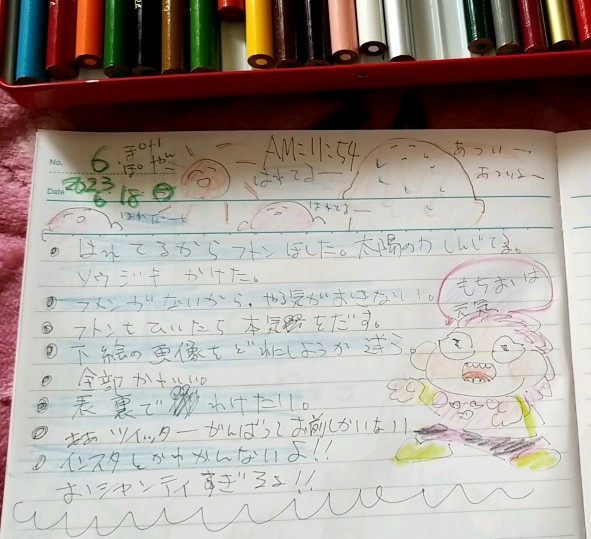 No. 6
AM:11:54
あつぃー
あつぃよー
Date 2023
6 18
はれてるよー
はれてるよー
はれてるからフトンほした。太陽の力しんじてる。
ソウジキかけた。
フトンがないから、やる気がおきない。
フトンをひいたら本気をだす。
下絵の画像をどれにしようか迷う。
全部かわいい。
表裏でわけたい。
ツイッターがんばってお前しかいない!!
インスタよくわかんないよ!!
オシャンティすぎるよ!!
もちおは
元気